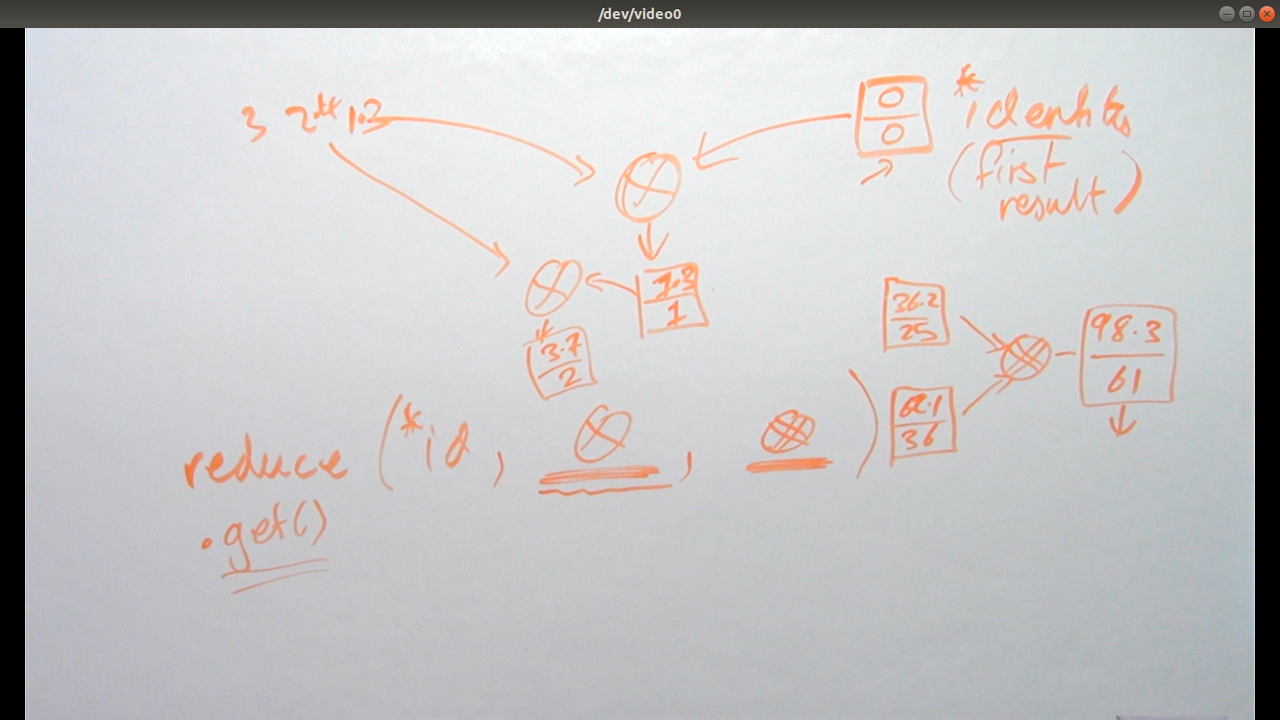 /dev/video0
3 2.4 1.3
0
0
*identity
(first
result)
1.3
1
3.7
2
36.2
25
62.1
36
98.3
61
reduce (*id, , )
.get()